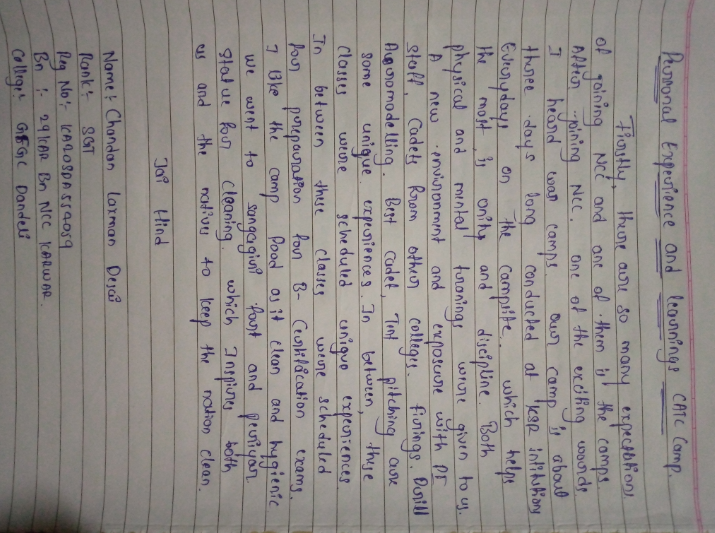 Personal Experience and learnings CATC Camp.
Firstly, there are so many expectations
of joining NCC and one of them is the camps.
After joining NCC. one of the exciting words
I heard was camps our camp is about
three days long conducted at KSR intitutions
Everydays on The campsite.. which helps
the most is unity and discipline. Both
physical and mental tranings were given to us.
A new environment and exposure with PI
staff, Cadets from other colleges. firings. Drill
Aeromodelling. Best cadet, Tint pitching are
some unique experiences. In between, these
classes were scheduled unique experiences
In between these classes were scheduled
four preparation for B- Certification exams.
I like the camp food as it clean and hygienic
we went to sangagiri fort and periyar
statue for cleaning. which Inspires both
us and the natives to keep the nation clean.
Jai Hind
Name : Chandan Laxman Desai
Rank : SGT
Reg No :
Bn :- 29KAR Bn NCC KARWAR.
College: GFGC Dandeli